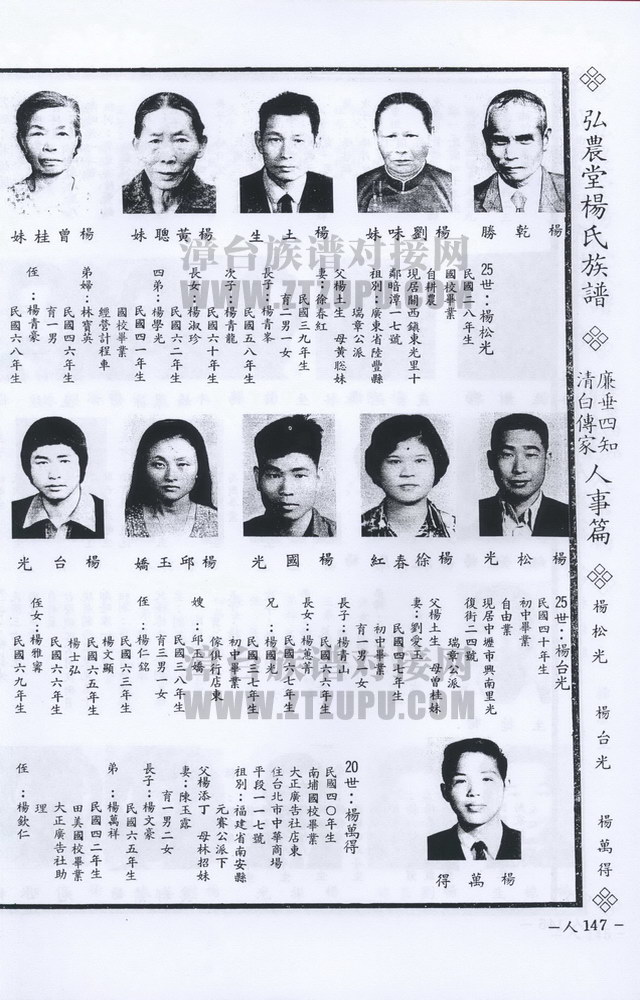 弘農堂楊氏族譜
廉垂四知
清白傳家
人事篇
楊松光
楊台光
楊萬得
楊乾勝
楊劉味妹
楊土生
楊黃聰妹
楊曾桂妹
25世：楊松光
民國二八年生
國校畢業
自耕農
現居關西鎮東光里十
鄰暗潭一七號
祖別：廣東省陸豐縣
瑞章公派
父楊土生 母黃聡妹
妻：徐春紅
民國三九年生
育二男一女
長子：楊青峯
民國五八年生
次子：楊青龍
民國六十年生
長女：楊淑珍
民國六二年生
四弟：楊學光
民國四一年生
國校畢業
經營計程車
弟婦：林寶英
民國四六年生
育一男
侄：楊青豪
民國六八年生
楊松光
楊徐春紅
楊國光
楊邱玉嬌
楊台光
25世：楊台光
民國四十年生
初中畢業
自由業
現居中壢市興南里光
復街二四號
瑞章公派
父楊土生 母曾桂妹
妻：劉愛
民國四七年生
初中畢業
育一男一女
長子：楊青山
民國六六年生
長女：楊小菁
民國六七年生
兄：楊國光
民國三七年生
初中畢業
傢俱行店東
嫂 邱玉嬌
民國三八年生
育三男一女
侄：楊仁銘
民國六三年生
楊文顯
民國六五年生
楊士弘
民國六六年生
侄女：楊雅寗
民國六九年生
楊萬得
20世：楊萬得
民國四〇年生
南埔國校畢業
大正廣告社店東
住台北市中華商場
平段一一七號
祖別：福建省南安縣
元賽公派下
父楊添丁 母林招妹
妻：陳玉露
育一男二女
長子：楊文豪
民國六五年生
弟：楊萬祥
民國四二年生
田美國校畢業
大正廣告社助
理
侄：楊欽仁
－人147－
漳台族谱对接网
WWW.ZTZUPU.COM
漳台族谱对接网
WWW.ZTZUPU.COM